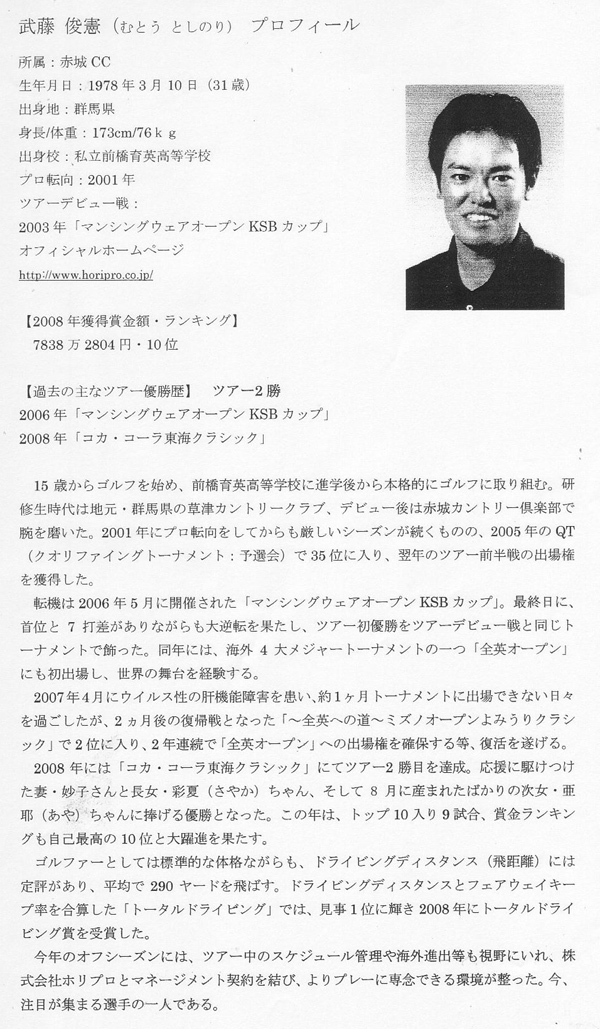 武藤 俊憲（むとう としのり） プロフィール
所属：赤城 CC
生年月日：1978 年 3 月 10 日（31 歳）
出身地：群馬県
身長/体重：173cm/76ｋｇ
出身校：私立前橋育英高等学校
プロ転向：2001 年
ツアーデビュー戦：
2003 年「マンシングウェアオープン KSB カップ」
オフィシャルホームページ
http://www.horipro.co.jp/
【2008 年獲得賞金額・ランキング】
7838 万 2804 円・10 位
【過去の主なツアー優勝歴】 ツアー2 勝
2006 年「マンシングウェアオープン KSB カップ」
2008 年「コカ・コーラ東海クラシック」
15 歳からゴルフを始め、前橋育英高等学校に進学後から本格的にゴルフに取り組む。研
修生時代は地元・群馬県の草津カントリークラブ、デビュー後は赤城カントリー倶楽部で
腕を磨いた。2001 年にプロ転向をしてからも厳しいシーズンが続くものの、2005 年の QT
（クオリファイングトーナメント：予選会）で 35 位に入り、翌年のツアー前半戦の出場権
を獲得した。
転機は 2006 年 5 月に開催された「マンシングウェアオープン KSB カップ」。最終日に、
首位と 7 打差がありながらも大逆転を果たし、ツアー初優勝をツアーデビュー戦と同じト
ーナメントで飾った。同年には、海外 4 大メジャートーナメントの一つ「全英オープン」
にも初出場し、世界の舞台を経験する。
2007 年 4 月にウイルス性の肝機能障害を患い、約 1 ヶ月トーナメントに出場できない日々
を過ごしたが、2 ヵ月後の復帰戦となった「～全英への道～ミズノオープンよみうりクラシ
ック」で 2 位に入り、2 年連続で「全英オープン」への出場権を確保する等、復活を遂げる。
2008 年には「コカ・コーラ東海クラシック」にてツアー2 勝目を達成。応援に駆けつけ
た妻・妙子さんと長女・彩夏（さやか）ちゃん、そして 8 月に産まれたばかりの次女・亜
耶（あや）ちゃんに捧げる優勝となった。この年は、トップ 10 入り 9 試合、賞金ランキン
グも自己最高の 10 位と大躍進を果たす。
ゴルファーとしては標準的な体格ながらも、ドライビングディスタンス（飛距離）には
定評があり、平均で 290 ヤードを飛ばす。ドライビングディスタンスとフェアウェイキー
プ率を合算した「トータルドライビング」では、見事 1 位に輝き 2008 年にトータルドライ
ビング賞を受賞した。
今年のオフシーズンには、ツアー中のスケジュール管理や海外進出等も視野にいれ、株
式会社ホリプロとマネージメント契約を結び、よりプレーに専念できる環境が整った。今、
注目が集まる選手の一人である。